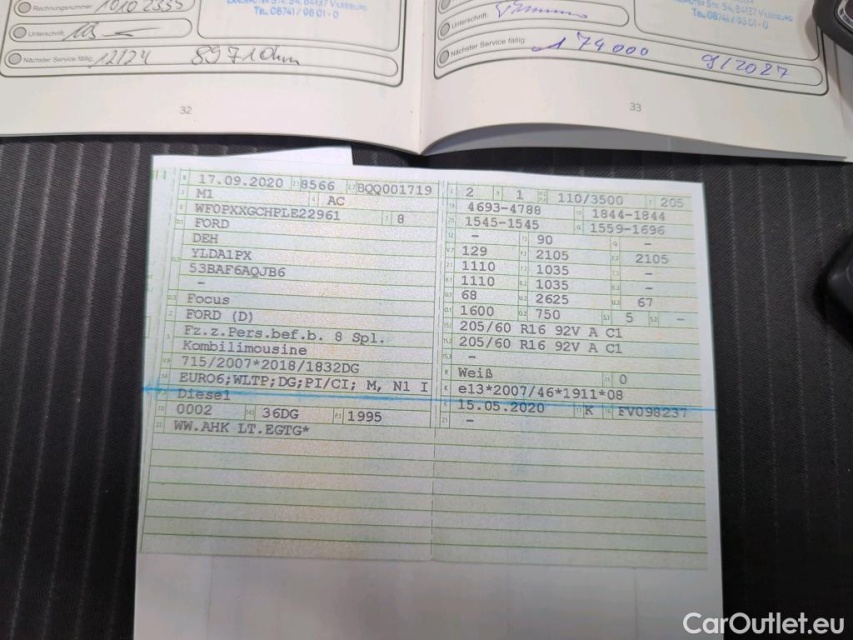 Rechnungsnummer 10102355
Unterschrift
Nächster Service fällig 12/24 89710km
Tel. 08741/9601-0
32
Unterschrift
Nächster Service fällig 174000 9/2027
Tel. 08741/9601-0
33
17.09.2020 8566 BQQ001719
M1 AC
WF0PXXGCHPLE22961 8
FORD
DEH
YLDA1PX
53BAF6AQJB6
-
Focus
FORD (D)
Fz.z.Pers.bef.b. 8 Spl.
Kombilimousine
715/2007*2018/1832DG
EURO6;WLTP;DG;PI/CI; M, N1 I
Diesel
0002 36DG 1995
WW.AHK LT.EGTG*
2 1 110/3500 205
4693-4788 1844-1844
1545-1545 1559-1696
- 90 -
129 2105 2105
1110 1035 -
1110 1035 -
68 2625 67
1600 750 5 -
205/60 R16 92V A C1
205/60 R16 92V A C1
-
Weiß 0
e13*2007/46*1911*08
15.05.2020 K FV098237
-
CarOutlet.eu